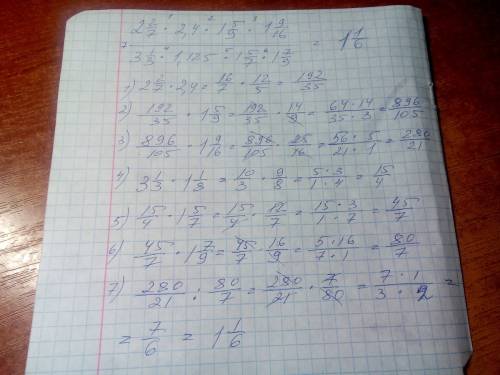 (2 2/7 · 2,4 · 1 5/9 · 1 9/16) / (3 1/3 · 1,125 · 1 5/7 · 1 7/9) = 1 1/6
1) 2 2/7 · 2,4 = 16/7 · 12/5 = 192/35
2) 192/35 · 1 5/9 = 192/35 · 14/9 = 64·14/35·3 = 896/105
3) 896/105 · 1 9/16 = 896/105 · 25/16 = 56·5/21·1 = 280/21
4) 3 1/3 · 1 1/8 = 10/3 · 9/8 = 5·3/1·4 = 15/4
5) 15/4 · 1 5/7 = 15/4 · 12/7 = 15·3/1·7 = 45/7
6) 45/7 · 1 7/9 = 45/7 · 16/9 = 5·16/7·1 = 80/7
7) 280/21 : 80/7 = 280/21 · 7/80 = 7·1/3·2 =
= 7/6 = 1 1/6